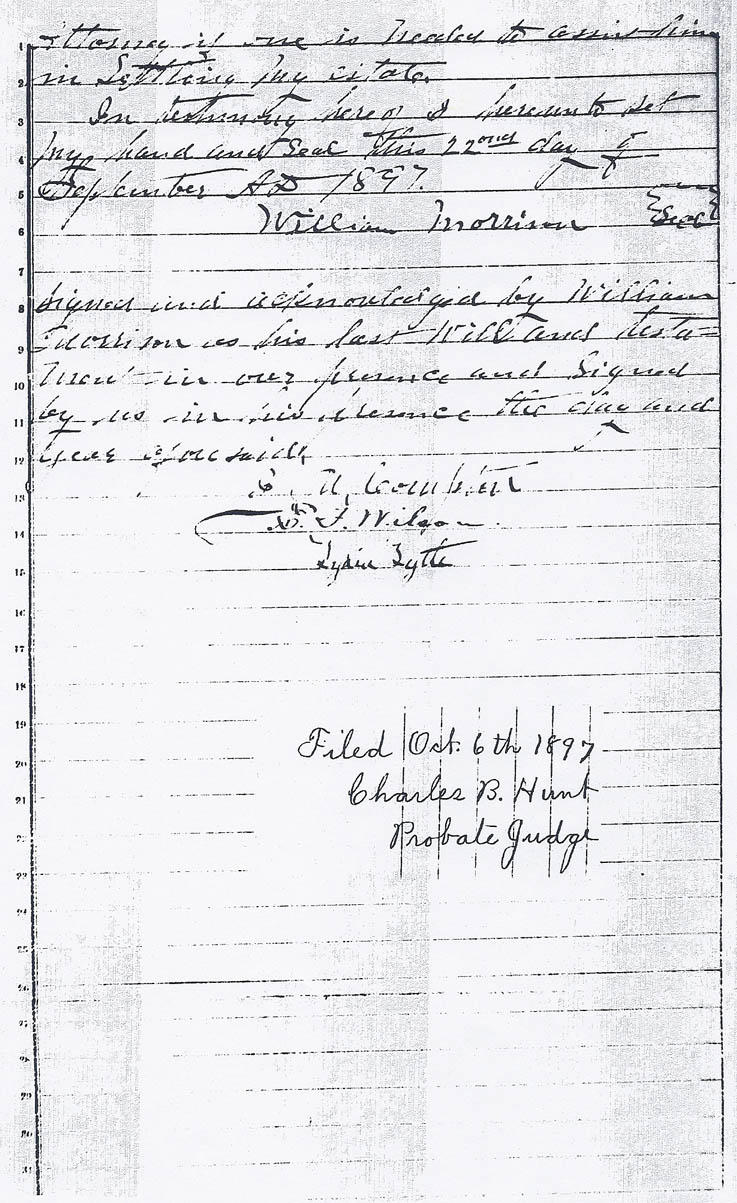 Attorney if one is needed to assist him
in Settling my estate.
In testimony hereof I hereunto set
my hand and Seal this 22ond day of
September AD 1897.
William Morrison {Seal}
Signed and acknowledged by William
Morrison as his last Will and testa=
ment in our presence and Signed
by us in his presence the day and
year aforesaid.
F. Wilson
Lydia Lytle
Filed Oct. 6th 1897
Charles B. Hunt
Probate Judge
1
2
3
4
5
6
7
8
9
10
11
12
13
14
15
16
17
18
19
20
21